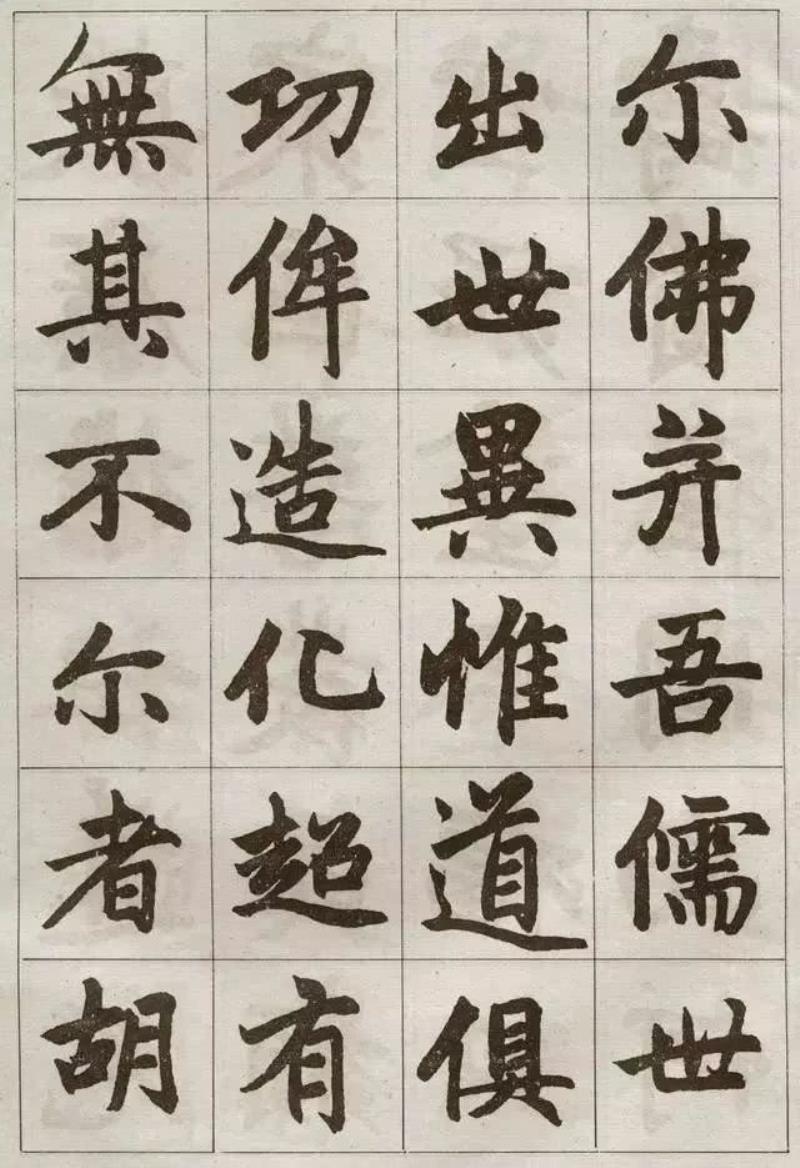 尓佛并吾儒世
出世異惟道俱
功侔造化超有
無其不尓者胡